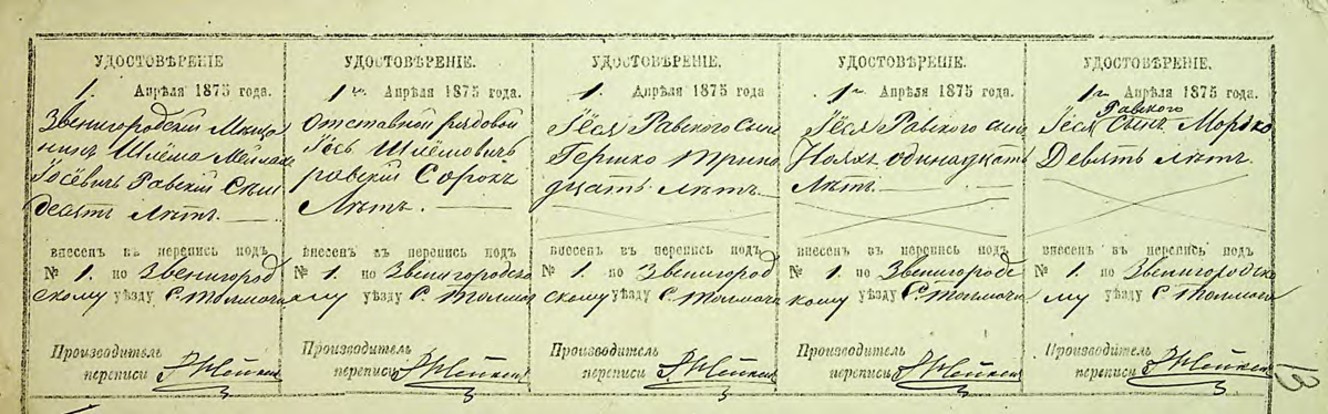 УДОСТОВѢРЕНІЕ
1. Апрѣля 1875 года.
Звенигородскій Мѣща
нинъ Шлёма
Іосёвичъ Равскій Семь
десятъ Лѣтъ.
внесенъ въ перепись подъ
№ 1. по Звенигород
скому уѣзду С. Толмачи
Производитель
переписи
УДОСТОВѢРЕНІЕ.
1го Апрѣля 1875 года.
Отставной рядовой
Іось Шлёмовичъ
равскій Сорокъ
Лѣтъ.
внесенъ въ перепись подъ
№ 1 по Звенигородско
му уѣзду С. Толмачи
Производитель
переписи
УДОСТОВѢРЕНІЕ.
1. Апрѣля 1875 года
Іося Равского Сынъ
Гершко трина
дцать лѣтъ.
внесенъ въ перепись подъ
№ 1. по Звенигород
скому уѣзду С. Толмачи
Производитель
переписи
УДОСТОВѢРЕНІЕ.
1го Апрѣля 1875 года.
Іося Равского сынъ
Нояхъ одинадцать
Лѣтъ.
внесенъ въ перепись подъ
№ 1. по Звенигородс
кому уѣзду С. Толмачи
Производитель
переписи
УДОСТОВѢРЕНІЕ.
1го Апрѣля 1875 года.
Равского
Іося Сынъ Мордко
Девять лѣтъ.
внесенъ въ перепись подъ
№ 1. по Звенигородско
му уѣзду С. Толмачи
Производитель
переписи